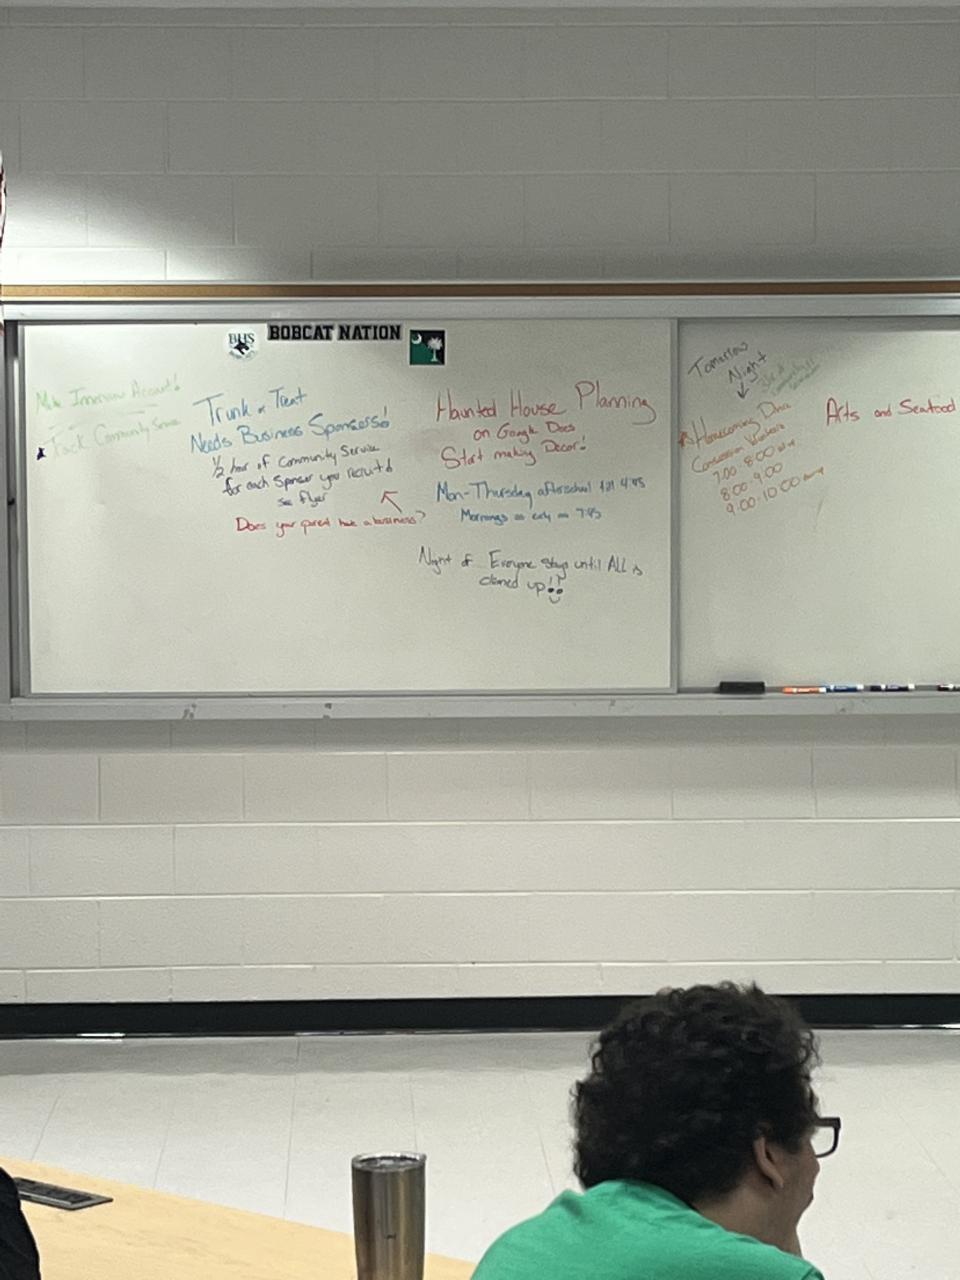 BHS
BOBCAT NATION
Account!
Track Community Service
Trunk or Treat
Needs Business Sponsers!
1/2 hour of Community Service
for each Sponser you recruit!
see flyer
Does your parent have a business?
Haunted House Planning
on Google Docs
Start making Decor!
Mon-Thursday afterschool till 4:45
Mornings as early as 7:45
Night of Everyone stays until ALL is
cleaned up!!
Tomorrow
Night
Homecoming
Concession Workers
7:00-8:00
8:00-9:00
9:00-10:00
Arts and Seafood